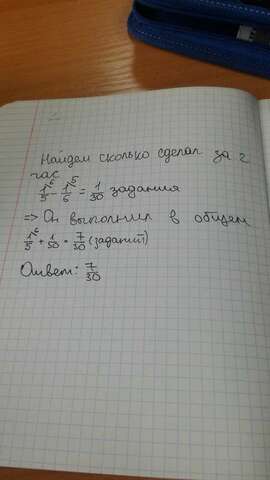 Найдем сколько сделал за 2
час
1/5^6 - 1/6^5 = 1/30 задания
=> Он выполнил в общем
1/5^6 + 1/30 = 7/30 (заданий)
Ответ: 7/30